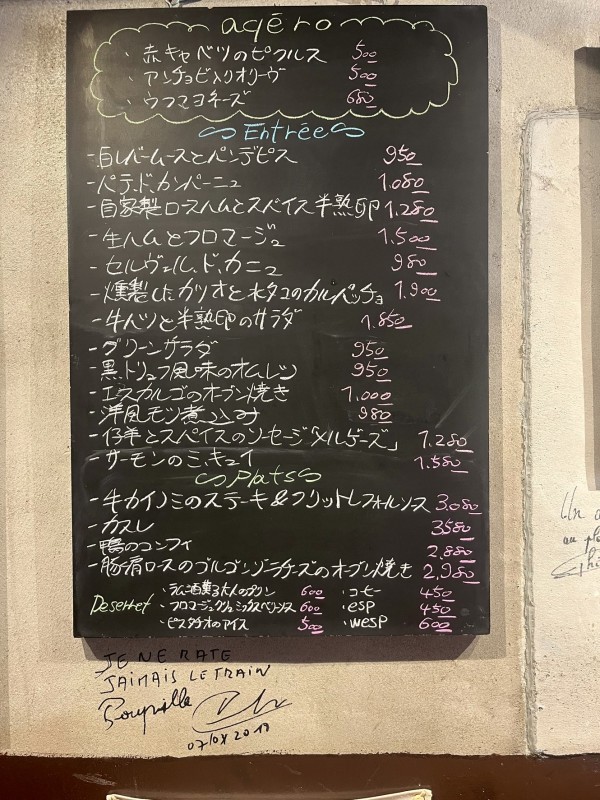 apéro
・赤キャベツのピクルス 500
・アンチョビ入りオリーヴ 500
・ウフマヨネーズ 680
Entrée
-白レバームースとパンデピス 950
-パテ.ド.カンパーニュ 1.080
-自家製ロースハムとスパイス半熟卵 1.280
-生ハムとフロマージュ 1.500
-セルヴェル.ド.カニュ 980
-燻製したカツオと水タコのカルパッチョ 1.900
-牛ハツと半熟卵のサラダ 1.850
-グリーンサラダ 950
-黒トリュフ風味のオムレツ 950
-エスカルゴのオーブン焼き 1.000
-洋風モツ煮込み 980
-仔羊とスパイスのソーセージ「メルゲーズ」 1.280
-サーモンのミ.キュイ 1.580
Plats
-牛カイノミのステーキ&フリットレフォルソース 3.080
-カスレ 3580
-鴨のコンフィ 2.880
-豚肩ロースのゴルゴンゾーラチーズのオーブン焼き 2,980
Desertet
・ラム酒薫る大人のプリン 600 ・コーヒー 450
・フロマージュクリュ ミックスベリーソース 600 ・esp 450
・ピスタチオのアイス 500 ・wesp 600
JE NE RATE
JAIMAIS LE TRAIN
2019
Un
au